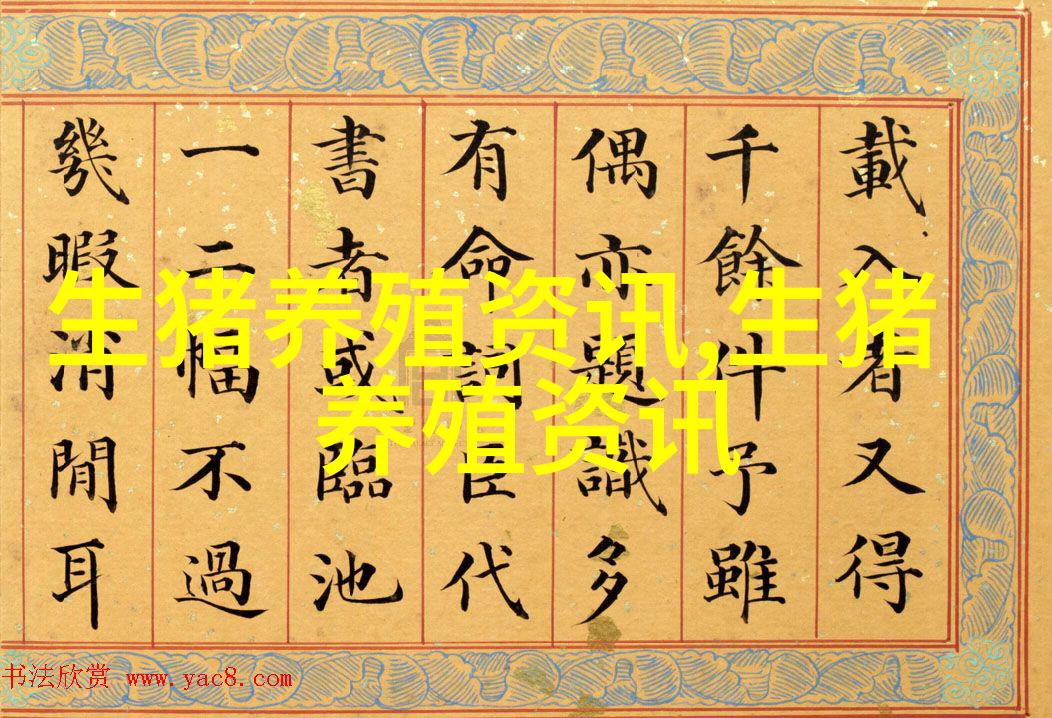 載入者又得
千餘件予雖
偶亦題識多
有命詞臣代
書者或臨池
一二幅不過
幾暇消閒耳
生猪养殖资讯,生猪
养殖资讯
书法欣赏 www.yac8.com